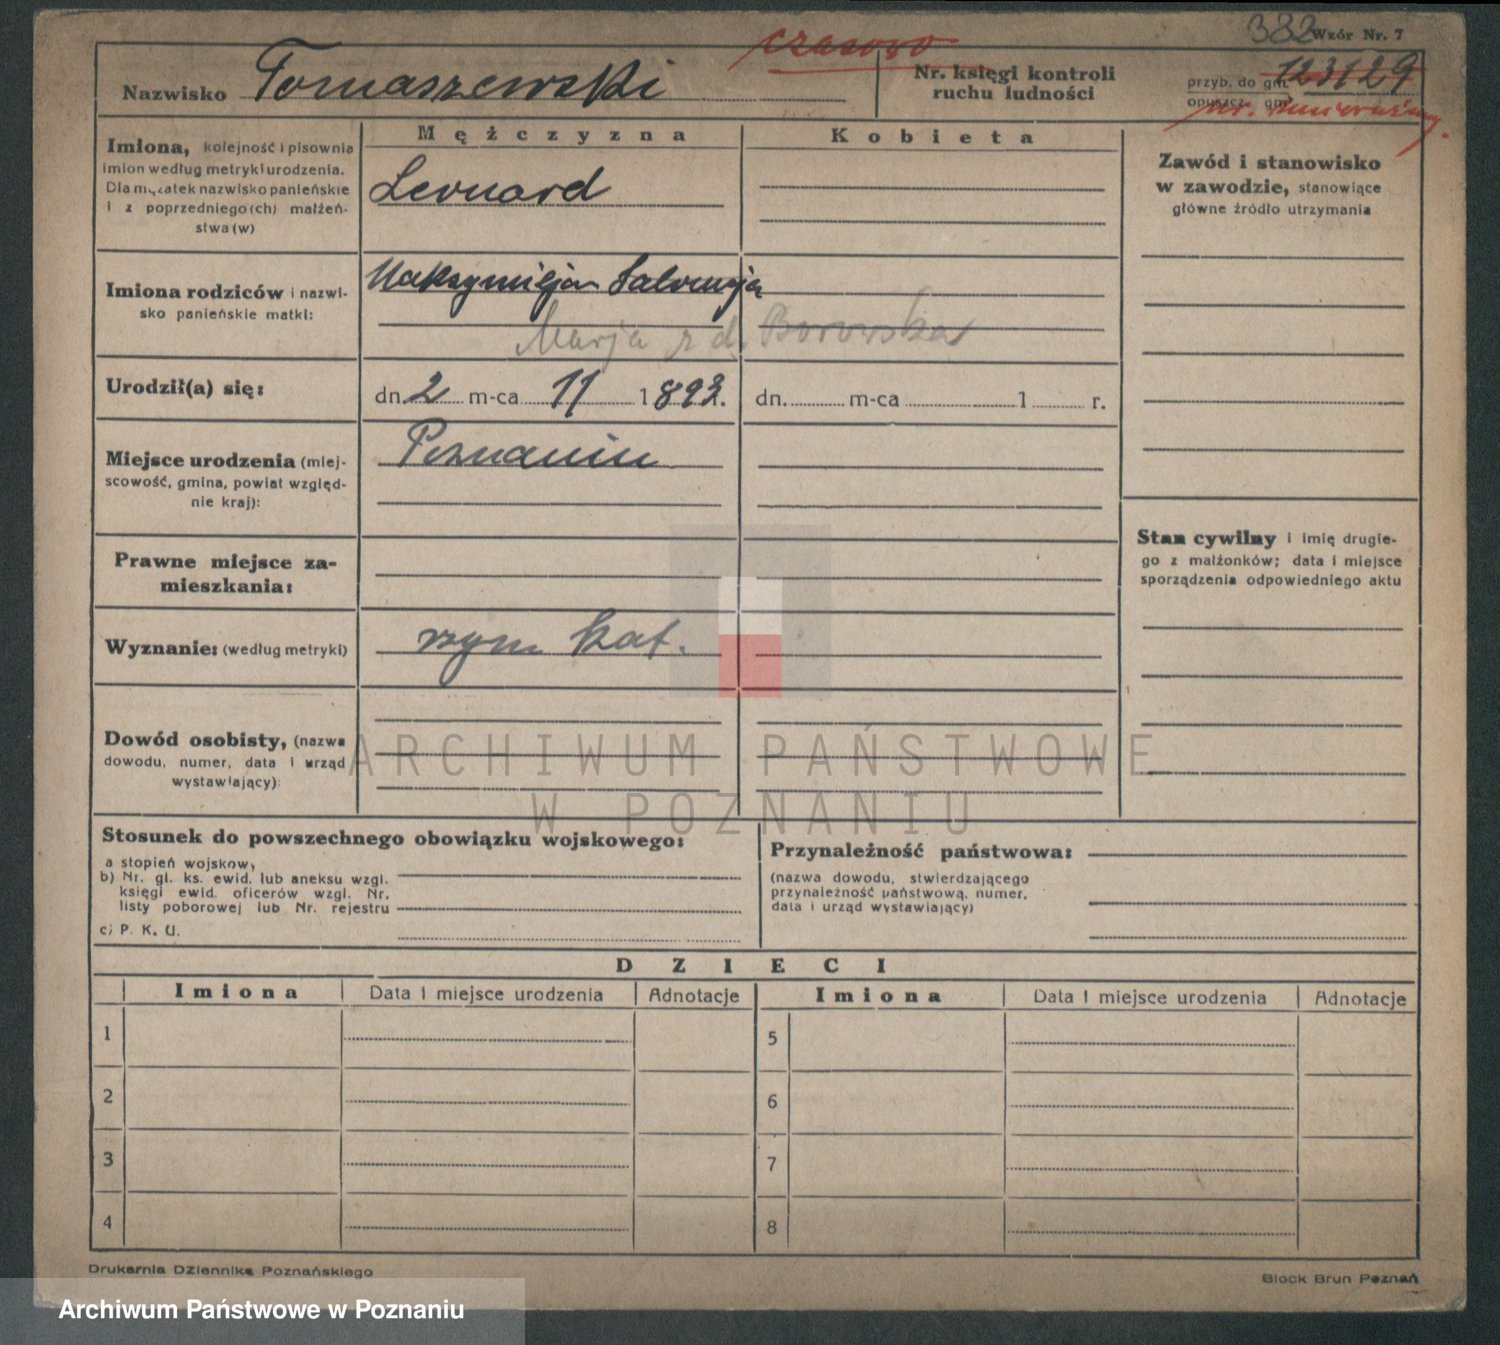 382 Wzór Nr. 7
czasowo
Nazwisko Tomaszewski
Nr. księgi kontroli
ruchu ludności
przyb. do gm. 123129
opuszcz. gm.
nr. unieważniony.
Mężczyzna
Kobieta
Imiona, kolejność i pisownia
imion według metryki urodzenia.
Dla mężatek nazwisko panieńskie
i z poprzedniego(ch) małżeń-
stwa(w)
Leonard
Zawód i stanowisko
w zawodzie, stanowiące
główne źródło utrzymania
Imiona rodziców i nazwi-
sko panieńskie matki:
Maksymiljan Salomeja
Marja z d. Borowska
Urodził(a) się:
dn. 2 m-ca 11 1893 r.
dn. m-ca 1 r.
Miejsce urodzenia (miej-
scowość, gmina, powiat względ-
nie kraj):
Poznaniu
Stan cywilny i imię drugie-
go z małżonków; data i miejsce
sporządzenia odpowiedniego aktu
Prawne miejsce za-
mieszkania:
Wyznanie: (według metryki)
rzym kat.
Dowód osobisty, (nazwa
dowodu, numer, data i urząd
wystawiający):
ARCHIWUM PAŃSTWOWE
W POZNANIU
Stosunek do powszechnego obowiązku wojskowego:
a stopień wojskow,
b) Nr. gl. ks. ewid. lub aneksu wzgl.
księgi ewid. oficerów wzgl. Nr.
listy poborowej lub Nr. rejestru
c) P. K. U.
Przynależność państwowa:
(nazwa dowodu, stwierdzającego
przynależność państwową, numer,
data i urząd wystawiający)
DZIECI
Imiona Data i miejsce urodzenia Adnotacje Imiona Data i miejsce urodzenia Adnotacje
1 5
2 6
3 7
4 8
Drukarnia Dziennika Poznańskiego
Block Brun Poznań
Archiwum Państwowe w Poznaniu